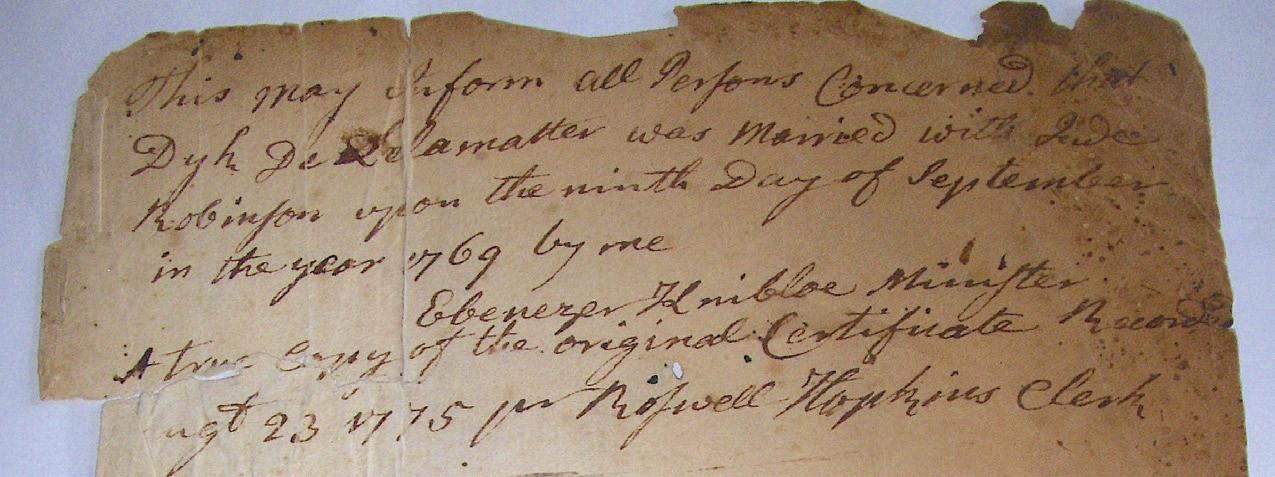 This may Inform all Persons Concerned that
Dyk De Lamatter was Married with Jude
Robinson upon the ninth Day of September
in the year 1769 by me
Ebenezer Knibloe Minister
A true Copy of the original Certificate Recorded
ugt 23 1775 pr Roswell Hopkins Clerk